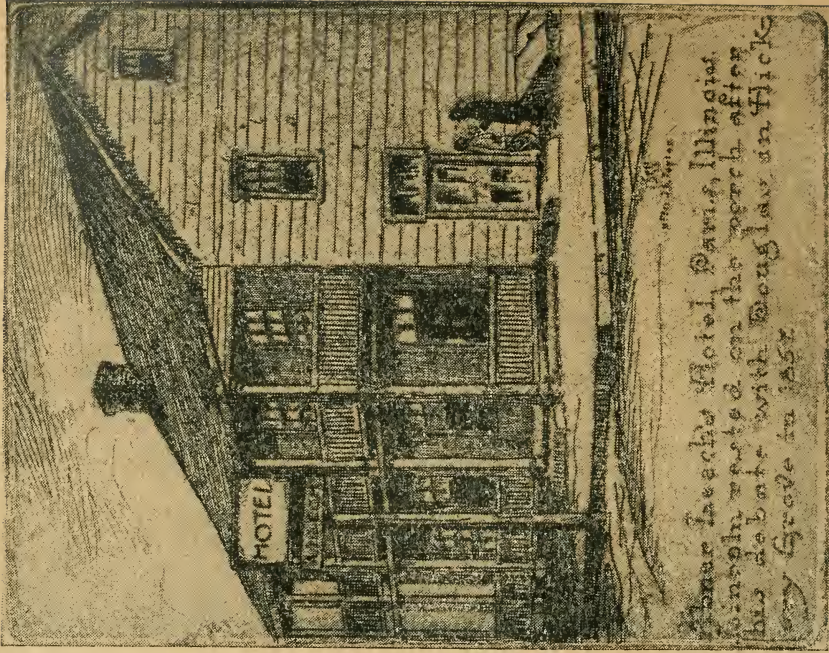 HOTEL
Abner Leachs Hotel, Paris, Illinois.
Lincoln rested on the porch after
his debate with Douglas in Hick-
ory Grove in 1858